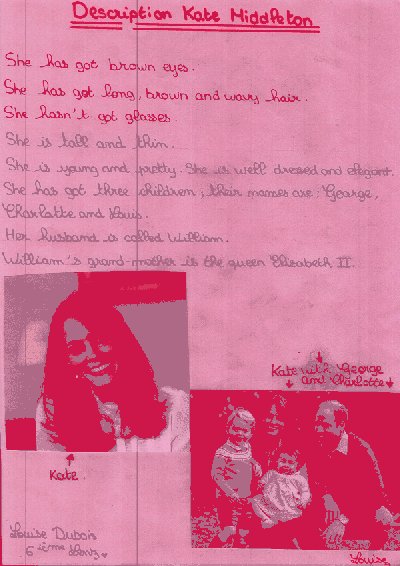 Description Kate Middleton
She has got brown eyes.
She has got long, brown and wavy hair.
She hasn't got glasses.
She is tall and thin.
She is young and pretty. She is well dressed and elegant.
She has got three children ; their names are : George,
Charlotte and Louis.
Her husband is called William.
William's grand-mother is the queen Elisabeth II.
Kate with George
and Charlotte
Kate
Louise Dubois
6ième
Louise